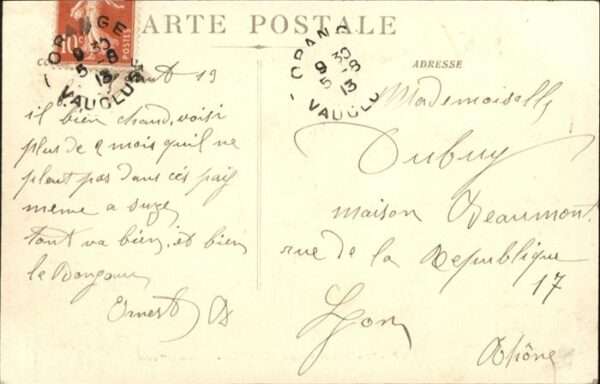 CARTE POSTALE
10c
POSTES
ORANGE
9 30
5 -8
13
VAUCLUSE
ORANG
9 30
5 -8
13
VAUCLU
ADRESSE
13
il bien chaud, voisi
plus de 2 mois quil ne
pleut pas dans cés pays
meme a suze
tout va bien, et bien
le Bonjour
Ernest D
Mademoiselle
Dubuy
maison Beaumont
rue de la Republique
17
Lyon
Rhône